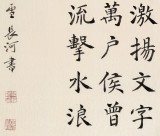 激揚文字
萬户侯曾
流擊水浪
雪長河書